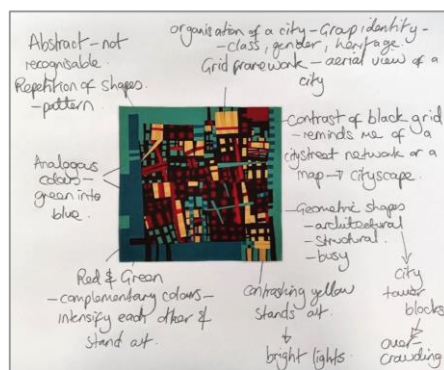 Abstract – not
recognisable
Repetition of shapes
– pattern
organisation of a city – Group identity –
– class, gender, heritage.
Grid framework – aerial view of a
city
contrast of black grid
– reminds me of a
citystreet network or a
map → cityscape
Analogous
colours –
green into
blue.
Geometric shapes
– architectural
– structural
– busy
city
tower
blocks
over-
crowding
Red & Green
– complementary colours –
intensify each other &
stand out.
contrasting yellow
stands out.
bright lights.